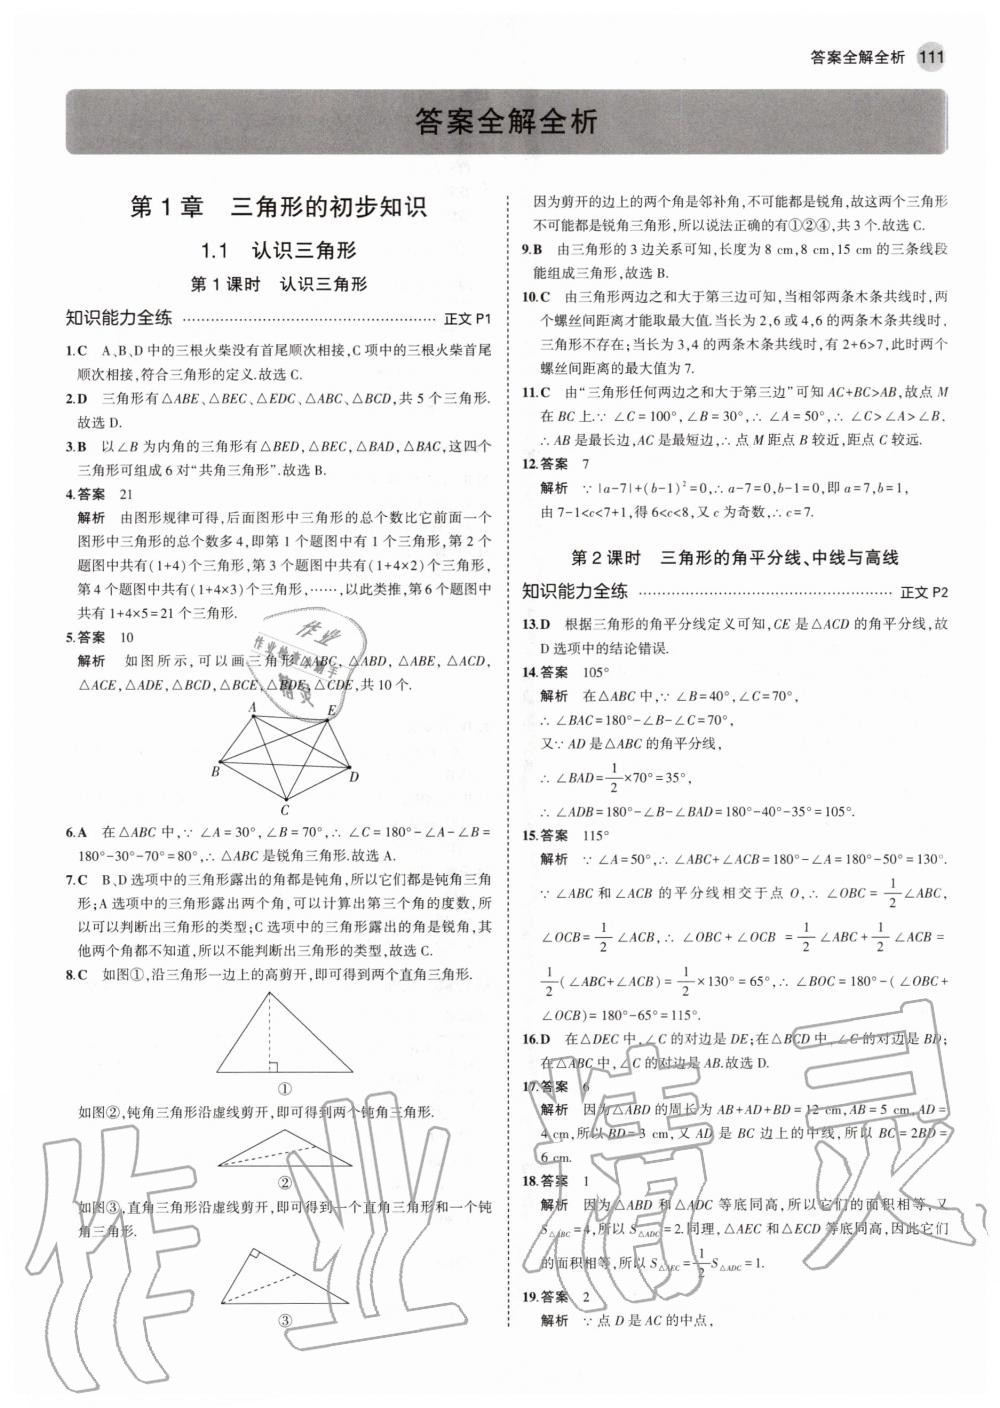 答案全解全析 111
答案全解全析
第1章 三角形的初步知识
1.1 认识三角形
第1课时 认识三角形
知识能力全练 正文P1
1.C A、B、D中的三根火柴没有首尾顺次相接,C项中的三根火柴首尾
顺次相接,符合三角形的定义.故选C.
2.D 三角形有△ABE、△BEC、△EDC、△ABC、△BCD,共5个三角形.
故选D.
3.B 以∠B为内角的三角形有△BED,△BEC,△BAD,△BAC,这四个
三角形可组成6对“共角三角形”.故选B.
4.答案 21
解析 由图形规律可得,后面图形中三角形的总个数比它前面一个
图形中三角形的总个数多4,即第1个题图中有1个三角形,第2个
题图中共有(1+4)个三角形,第3个题图中共有(1+4×2)个三角形,
第4个题图中共有(1+4×3)个三角形,……,以此类推,第6个题图中
共有1+4×5=21个三角形.
5.答案 10
解析 如图所示,可以画三角形△ABC,△ABD,△ABE,△ACD,
△ACE,△ADE,△BCD,△BCE,△BDE,△CDE,共10个.
A E
B D
C
6.A 在△ABC中,∵∠A=30°,∠B=70°,∴∠C=180°-∠A-∠B=
180°-30°-70°=80°,∴△ABC是锐角三角形.故选A.
7.C B、D选项中的三角形露出的角都是钝角,所以它们都是钝角三角
形;A选项中的三角形露出两个角,可以计算出第三个角的度数,所
以可以判断出三角形的类型;C选项中的三角形露出的角是锐角,其
他两个角都不知道,所以不能判断出三角形的类型,故选C.
8.C 如图①,沿三角形一边上的高剪开,即可得到两个直角三角形.
①
如图②,钝角三角形沿虚线剪开,即可得到两个钝角三角形.
②
如图③,直角三角形沿虚线剪开,即可得到一个直角三角形和一个钝
角三角形.
③
因为剪开的边上的两个角是邻补角,不可能都是锐角,故这两个三角形
不可能都是锐角三角形,所以说法正确的有①②④,共3个.故选C.
9.B 由三角形的3边关系可知,长度为8 cm,8 cm,15 cm的三条线段
能组成三角形,故选B.
10.C 由三角形两边之和大于第三边可知,当相邻两条木条共线时,两
个螺丝间距离才能取最大值.当长为2,6或4,6的两条木条共线时,
三角形不存在;当长为3,4的两条木条共线时,有2+6>7,此时两个
螺丝间距离的最大值为7.
11.C 由“三角形任何两边之和大于第三边”可知AC+BC>AB,故点M
在BC上.∵∠C=100°,∠B=30°,∴∠A=50°,∴∠C>∠A>∠B.
∴AB是最长边,AC是最短边,∴点M距点B较近,距点C较远.
12.答案 7
解析 ∵|a-7|+(b-1)²=0,∴a-7=0,b-1=0,即a=7,b=1,
由7-1<c<7+1,得6<c<8,又c为奇数,∴c=7.
第2课时 三角形的角平分线、中线与高线
知识能力全练 正文P2
13.D 根据三角形的角平分线定义可知,CE是△ACD的角平分线,故
D选项中的结论错误.
14.答案 105°
解析 在△ABC中,∵∠B=40°,∠C=70°,
∴∠BAC=180°-∠B-∠C=70°,
又∵AD是△ABC的角平分线,
∴∠BAD=1/2×70°=35°,
∴∠ADB=180°-∠B-∠BAD=180°-40°-35°=105°.
15.答案 115°
解析 ∵∠A=50°,∴∠ABC+∠ACB=180°-∠A=180°-50°=130°.
∵∠ABC和∠ACB的平分线相交于点O,∴∠OBC=1/2∠ABC,
∠OCB=1/2∠ACB,∴∠OBC+∠OCB=1/2∠ABC+1/2∠ACB=
1/2(∠ABC+∠ACB)=1/2×130°=65°,∴∠BOC=180°-(∠OBC+
∠OCB)=180°-65°=115°.
16.D 在△DEC中,∠C的对边是DE;在△BCD中,∠C的对边是BD;
在△ABC中,∠C的对边是AB.故选D.
17.答案 6
解析 因为△ABD的周长为AB+AD+BD=12 cm,AB=5 cm,AD=
4 cm,所以BD=3 cm,又AD是BC边上的中线,所以BC=2BD=
6 cm.
18.答案 1
解析 因为△ABD和△ADC等底同高,所以它们的面积相等,又
S△ABC=4,所以S△ADC=2.同理,△AEC和△ECD等底同高,因此它们
的面积相等,所以S△AEC=1/2S△ADC=1.
19.答案 2
解析 ∵点D是AC的中点,
作业
作业检查小帮手
精灵
作业精灵